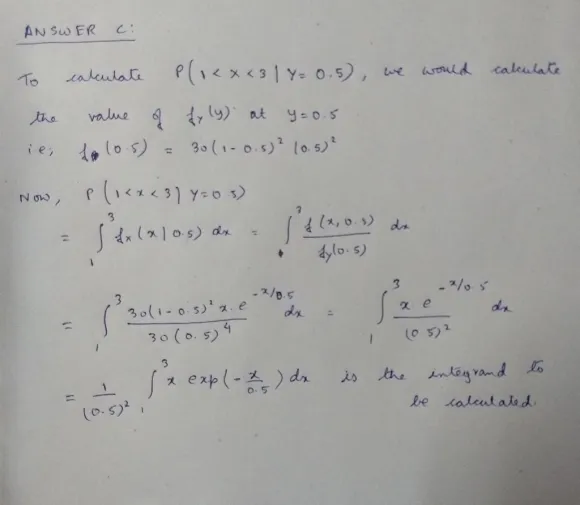 ANSWER C:
To calculate P(1 < X < 3 | Y = 0.5), we would calculate
the value of f_Y(y) at y = 0.5
i.e; f(0.5) = 30(1 - 0.5)² (0.5)²
Now, P(1 < x < 3 | Y = 0.5)
= ∫₁³ f_x(x | 0.5) dx = ∫³ f(x, 0.5) / f_y(0.5) dx
= ∫₁³ 30(1 - 0.5)² x. e^(-x/0.5) / 30(0.5)⁴ dx = ∫₁³ x e^(-x/0.5) / (0.5)² dx
= 1/(0.5)² ∫₁³ x exp(-x/0.5) dx is the integrand to
be calculated.